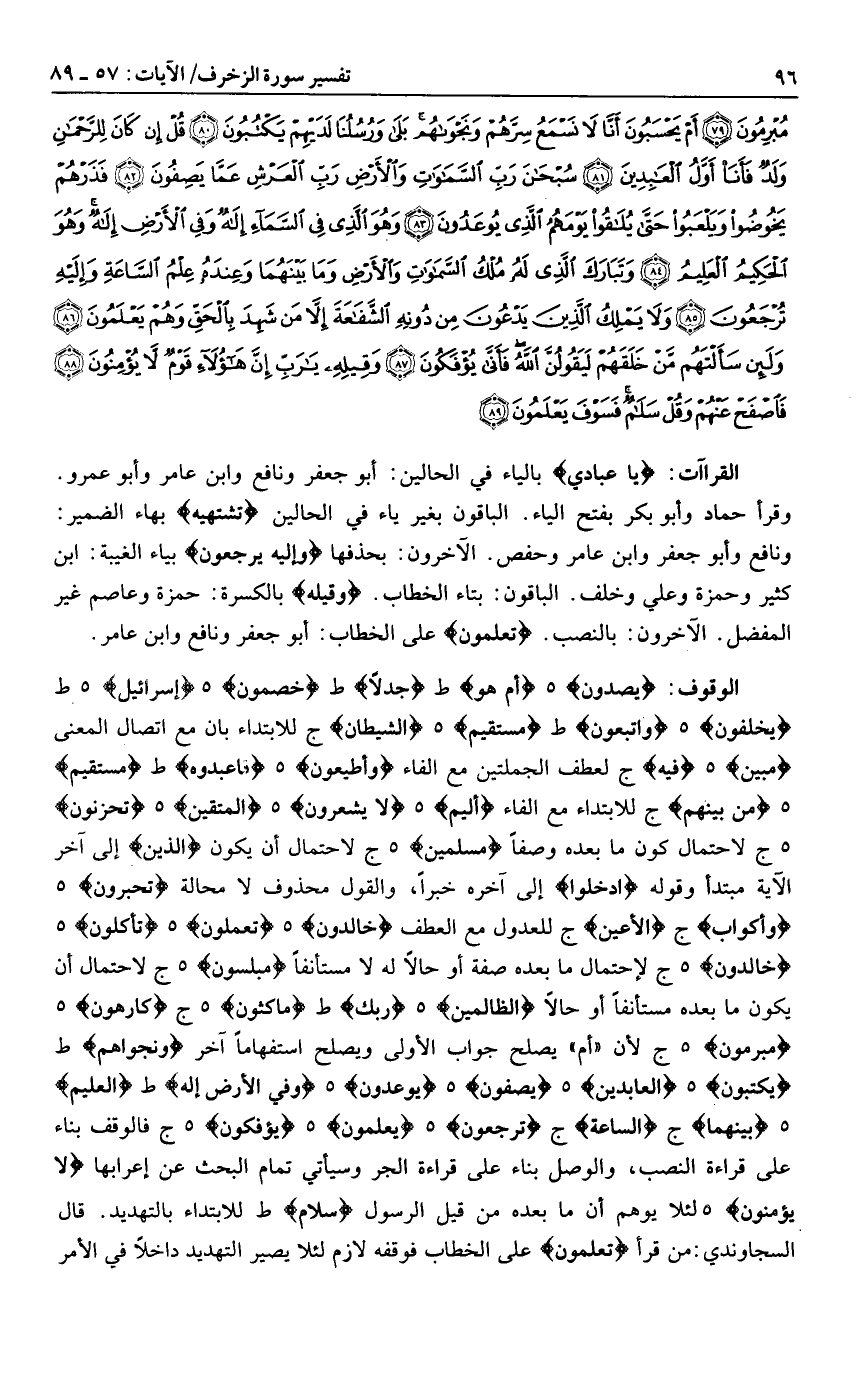 ٩٦ تفسير سورة الزخرف/ الآيات: ٥٧ ـ ٨٩
مُبْرِمُونَ ﴿٧٩﴾ أَمْ يَحْسَبُونَ أَنَّا لَا نَسْمَعُ سِرَّهُمْ وَنَجْوَىٰهُم ۚ بَلَىٰ وَرُسُلُنَا لَدَيْهِمْ يَكْتُبُونَ ﴿٨٠﴾ قُلْ إِن كَانَ لِلرَّحْمَٰنِ
وَلَدٌ فَأَنَا۠ أَوَّلُ ٱلْعَٰبِدِينَ ﴿٨١﴾ سُبْحَٰنَ رَبِّ ٱلسَّمَٰوَٰتِ وَٱلْأَرْضِ رَبِّ ٱلْعَرْشِ عَمَّا يَصِفُونَ ﴿٨٢﴾ فَذَرْهُمْ
يَخُوضُوا۟ وَيَلْعَبُوا۟ حَتَّىٰ يُلَٰقُوا۟ يَوْمَهُمُ ٱلَّذِى يُوعَدُونَ ﴿٨٣﴾ وَهُوَ ٱلَّذِى فِى ٱلسَّمَآءِ إِلَٰهٌ وَفِى ٱلْأَرْضِ إِلَٰهٌ ۚ وَهُوَ
ٱلْحَكِيمُ ٱلْعَلِيمُ ﴿٨٤﴾ وَتَبَارَكَ ٱلَّذِى لَهُۥ مُلْكُ ٱلسَّمَٰوَٰتِ وَٱلْأَرْضِ وَمَا بَيْنَهُمَا وَعِندَهُۥ عِلْمُ ٱلسَّاعَةِ وَإِلَيْهِ
تُرْجَعُونَ ﴿٨٥﴾ وَلَا يَمْلِكُ ٱلَّذِينَ يَدْعُونَ مِن دُونِهِ ٱلشَّفَٰعَةَ إِلَّا مَن شَهِدَ بِٱلْحَقِّ وَهُمْ يَعْلَمُونَ ﴿٨٦﴾
وَلَئِن سَأَلْتَهُم مَّنْ خَلَقَهُمْ لَيَقُولُنَّ ٱللَّهُ ۖ فَأَنَّىٰ يُؤْفَكُونَ ﴿٨٧﴾ وَقِيلِهِۦ يَٰرَبِّ إِنَّ هَٰٓؤُلَآءِ قَوْمٌ لَّا يُؤْمِنُونَ ﴿٨٨﴾
فَٱصْفَحْ عَنْهُمْ وَقُلْ سَلَٰمٌ ۚ فَسَوْفَ يَعْلَمُونَ ﴿٨٩﴾
القراآت: ﴿يا عبادي﴾ بالياء في الحالين: أبو جعفر ونافع وابن عامر وأبو عمرو.
وقرأ حماد وأبو بكر بفتح الياء. الباقون بغير ياء في الحالين ﴿تشتهيه﴾ بهاء الضمير:
ونافع وأبو جعفر وابن عامر وحفص. الآخرون: بحذفها ﴿وإليه يرجعون﴾ بياء الغيبة: ابن
كثير وحمزة وعلي وخلف. الباقون: بتاء الخطاب. ﴿وقيله﴾ بالكسرة: حمزة وعاصم غير
المفضل. الآخرون: بالنصب. ﴿تعلمون﴾ على الخطاب: أبو جعفر ونافع وابن عامر.
الوقوف: ﴿يصدون﴾ ٥ ﴿أم هو﴾ ط ﴿جدلاً﴾ ط ﴿خصمون﴾ ٥ ﴿إسرائيل﴾ ٥ ط
﴿يخلفون﴾ ٥ ﴿واتبعون﴾ ط ﴿مستقيم﴾ ٥ ﴿الشيطان﴾ ج للابتداء بان مع اتصال المعنى
﴿مبين﴾ ٥ ﴿فيه﴾ ج لعطف الجملتين مع الفاء ﴿وأطيعون﴾ ٥ ﴿فاعبدوه﴾ ط ﴿مستقيم﴾
٥ ﴿من بينهم﴾ ج للابتداء مع الفاء ﴿أليم﴾ ٥ ﴿لا يشعرون﴾ ٥ ﴿المتقين﴾ ٥ ﴿تحزنون﴾
٥ ج لاحتمال كون ما بعده وصفاً ﴿مسلمين﴾ ٥ ج لاحتمال أن يكون ﴿الذين﴾ إلى آخر
الآية مبتدأ وقوله ﴿ادخلوا﴾ إلى آخره خبراً، والقول محذوف لا محالة ﴿تحبرون﴾ ٥
﴿وأكواب﴾ ج ﴿الأعين﴾ ج للعدول مع العطف ﴿خالدون﴾ ٥ ﴿تعملون﴾ ٥ ﴿تأكلون﴾ ٥
﴿خالدون﴾ ٥ ج لإحتمال ما بعده صفة أو حالاً له لا مستأنفاً ﴿مبلسون﴾ ٥ ج لاحتمال أن
يكون ما بعده مستأنفاً أو حالاً ﴿الظالمين﴾ ٥ ﴿ربك﴾ ط ﴿ماكثون﴾ ٥ ج ﴿كارهون﴾ ٥
﴿مبرمون﴾ ٥ ج لأن «أم» يصلح جواب الأولى ويصلح استفهاماً آخر ﴿ونجواهم﴾ ط
﴿يكتبون﴾ ٥ ﴿العابدين﴾ ٥ ﴿يصفون﴾ ٥ ﴿يوعدون﴾ ٥ ﴿وفي الأرض إله﴾ ط ﴿العليم﴾
٥ ﴿بينهما﴾ ج ﴿الساعة﴾ ج ﴿ترجعون﴾ ٥ ﴿يعلمون﴾ ٥ ﴿يؤفكون﴾ ٥ ج فالوقف بناء
على قراءة النصب، والوصل بناء على قراءة الجر وسيأتي تمام البحث عن إعرابها ﴿لا
يؤمنون﴾ ٥ لئلا يوهم أن ما بعده من قيل الرسول ﴿سلام﴾ ط للابتداء بالتهديد. قال
السجاوندي: من قرأ ﴿تعلمون﴾ على الخطاب فوقفه لازم لئلا يصير التهديد داخلاً في الأمر